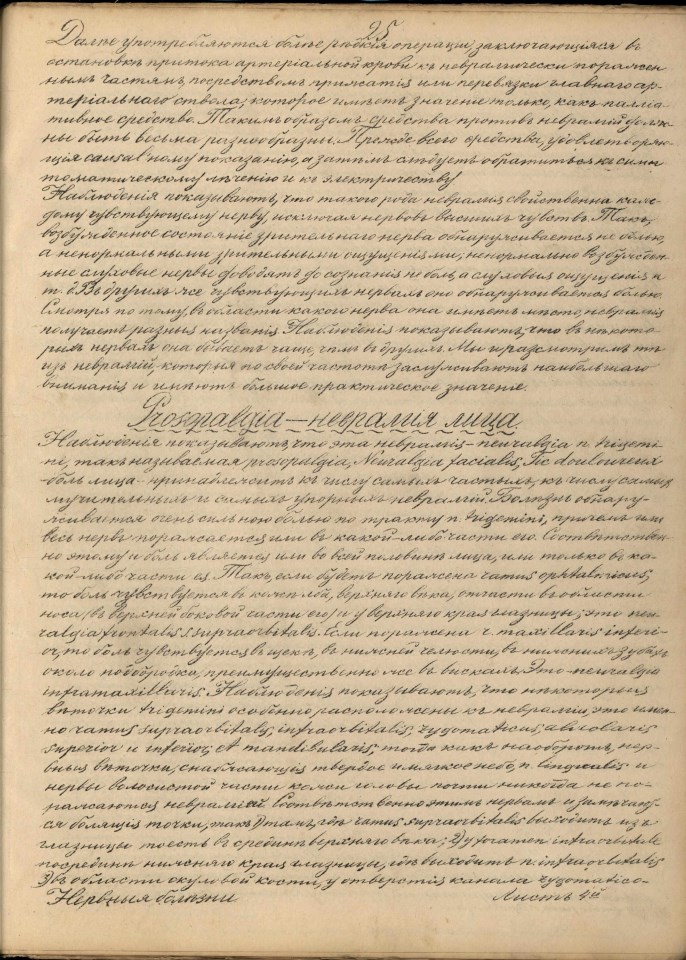 25
Далѣе употребляются болѣе рѣдкія операціи, заключающіяся въ
остановкѣ притока артеріальной крови къ невралгически поражен-
нымъ частямъ посредствомъ прижатія или перевязки главнаго ар-
теріальнаго ствола, которое имѣетъ значеніе только, какъ палліа-
тивное средство. Такимъ образомъ средства противъ невралгіи долж-
ны быть весьма разнообразны. Прежде всего средства, удовлетворяю-
щія causal'ному показанію, а затѣмъ слѣдуетъ обратиться къ симп-
томатическому лѣченію и къ электричеству!
Наблюденія показываютъ, что такого рода невралгія свойственна каж-
дому чувствующему нерву, исключая нервовъ высшихъ чувствъ. Такъ,
возбужденное состояніе зрительнаго нерва обнаруживается не болью,
а ненормальными зрительными ощущеніями; ненормально возбужден-
ные слуховые нервы доводятъ до сознанія не боль, а слуховыя ощущенія и
т. д. Въ другихъ же чувствующихъ нервахъ оно обнаруживается болью.
Смотря по тому, въ области какого нерва она имѣетъ мѣсто, невралгія
получаетъ разныя названія. Наблюденія показываютъ, что въ нѣкото-
рыхъ нервахъ она бываетъ чаще, чѣмъ въ другихъ. Мы и разсмотримъ тѣ
изъ невралгій, которыя по своей частотѣ заслуживаютъ наибольшаго
вниманія и имѣютъ большое практическое значеніе.
Prosopalgia — невралгія лица.
Наблюденія показываютъ, что эта невралгія - neuralgia n. trigemi-
ni, такъ называемая prosopalgia, Neuralgia facialis, Tic douloureux
- боль лица - принадлежитъ къ числу самыхъ частыхъ, къ числу самыхъ
мучительныхъ и самыхъ упорныхъ невралгій. Болѣзнь обнару-
живается очень сильною болью по тракту n. trigemini, причемъ или
весь нервъ поражается или въ какой-либо части его. Соотвѣтствен-
но этому и боль является или во всей половинѣ лица, или только въ ка-
кой-либо части ея. Такъ, если будетъ пораженъ ramus ophtalmicus,
то боль чувствуется въ кожѣ лба, верхняго вѣка, отчасти въ области
носа (въ верхней боковой части его) и у верхняго края глазницы; это neu-
ralgia frontalis s. supraorbitalis. Если пораженъ r. maxillaris inferi-
or, то боль чувствуется въ щекѣ, въ нижней челюсти, въ нижнихъ зубахъ,
около подбородка, преимущественно же въ вискахъ. Это - neuralgia
inframaxillaris. Наблюденія показываютъ, что нѣкоторыя
вѣточки trigemini особенно расположены къ невралгіи, это имен-
но ramus supraorbitalis, infraorbitalis, zygomaticus, alveolaris
superior и inferior, et mandibularis, тогда какъ наоборотъ, нер-
вныя вѣточки, снабжающія твердое и мягкое небо, n. lingualis и
нервы волосистой части кожи головы почти никогда не по-
ражаются невралгіей. Соотвѣтственно этимъ нервамъ и замѣчаю-
тся болящія точки, такъ 1) тамъ, гдѣ ramus supraorbitalis выходитъ изъ
глазницы то есть въ срединѣ верхняго вѣка; 2) у foramen infraorbitale
посрединѣ нижняго края глазницы, гдѣ выходитъ n. infraorbitalis
3) въ области скуловой кости, у отверстія канала zygomatico-
Нервныя болѣзни Листъ 4й